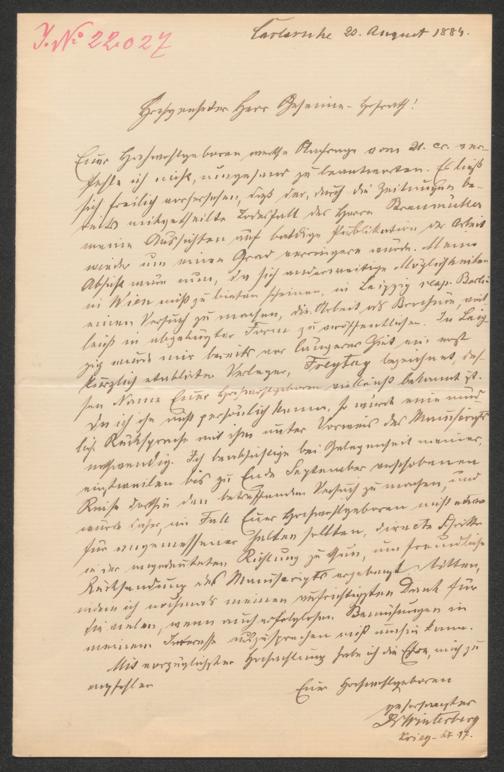 J. № 22027
Carlsruhe 20. August 1884.
Hochgeehrter Herr Geheime-Hofrath!
Euer Hochwohlgeboren werthe Anfrage vom 21. cr. ver-
fehle ich nicht, umgehend zu beantworten. Es ließ
sich freilich vorhersehen, daß der, durch die Zeitungen be-
reits mitgetheilte Todesfall des Herrn Braumüller
meine Aussichten auf baldige Publikation der Arbeit
wieder um einen Grad verringern würde. Meine
Absicht wäre nun, da sich anderweitige Möglichkeiten
in Wien nicht zu bieten scheinen, in Leipzig resp. Berlin
einen Versuch zu machen, die Arbeit als Brochüre, viel-
leicht in abgekürzter Form zu veröffentlichen. In Leip-
zig wurde mir bereits vor längerer Zeit ein erst
kürzlich etablirter Verleger, Freytag bezeichnet, des-
sen Name Euer Hochwohlgeboren vielleicht bekannt ist.
Da ich ihn nicht persönlich kenne, so würde eine münd-
liche Rücksprache mit ihm unter Vorweis des Manuscripts
nothwendig. Ich beabsichtige bei Gelegenheit meiner,
einstweilen bis zu Ende September verschobenen
Reise dorthin den betreffenden Versuch zu machen, und
würde daher, im Fall Euer Hochwohlgeboren nicht etwa
für angemessener halten sollten, directe Schritte
in der angedeuteten Richtung zu thun, um freundliche
Rücksendung des Manuscripts ergebenst bitten,
indem ich nochmals meinen aufrichtigsten Dank für
die vielen, wenn auch erfolglosen Bemühungen in
meinem Interesse auszusprechen nicht umhin kann.
Mit vorzüglichster Hochachtung habe ich die Ehre, mich zu
empfehlen
Euer Hochwohlgeboren
gehorsamster
Dr Winterberg
Krieg-st 17.